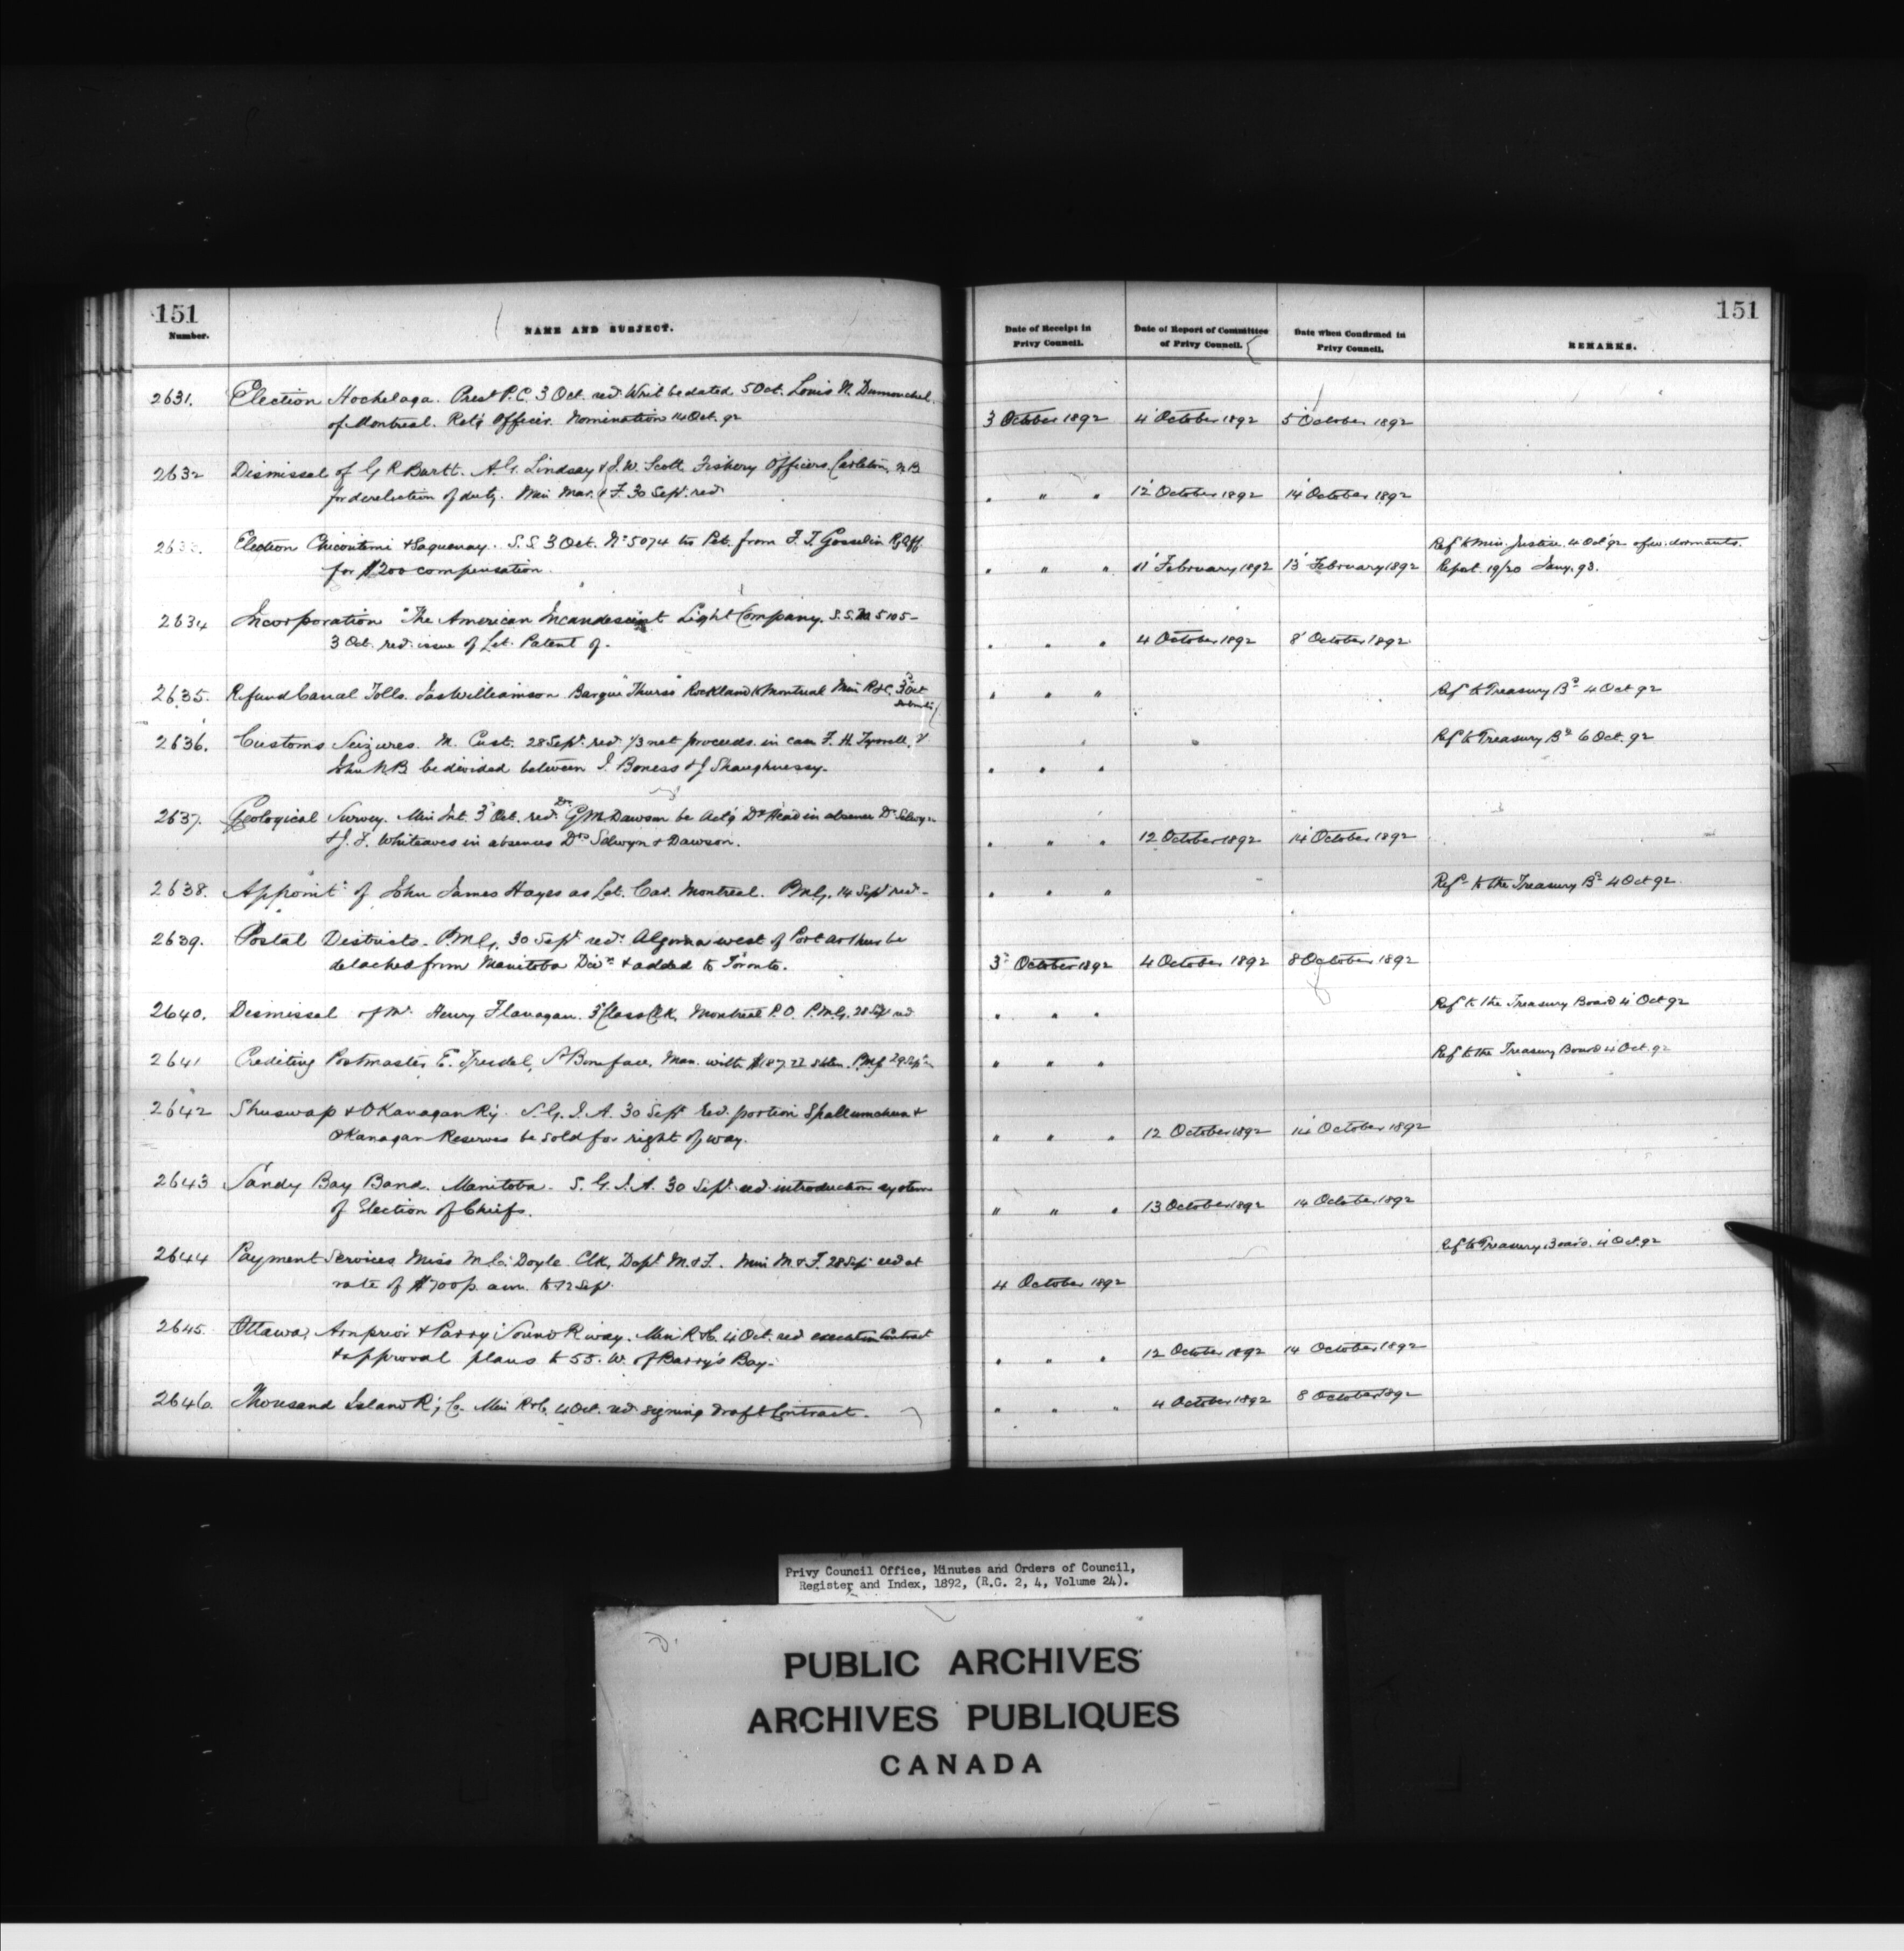 151
Number.
NAME AND SUBJECT.
Date of Receipt in Privy Council.
Date of Report of Committee of Privy Council.
Date when Confirmed in Privy Council.
REMARKS.
151
2631. Election Hochelaga. Prest P.C. 3 Oct. red. Writ be dated 5 Oct. Louis N. Dumouchel
of Montreal. Retg Officer. Nomination 14 Oct. 92 3 October 1892 4 October 1892 5 October 1892
2632 Dismissal of G R Burtt. A.G. Lindsay & J. W. Scott Fishery Officers Carleton, N B
for dereliction of duty. Min Mar. & F. 30 Sept. red " " " 12 October 1892 14 October 1892
2633. Election Chicoutimi & Saguenay. S.S. 3 Oct. No 5074 Pet. from F. T. Gosselin Rg Off. Ref to Min. Justice 4 Oct 92
for $200 compensation. " " " 11 February 1892 13 February 1892 Repet. 19/20 Jany. 93.
2634 Incorporation "The American Incandescent Light Company. S.S. No 5105-
3 Oct. red. issue of Let. Patent of. " " " 4 October 1892 8 October 1892
2635. Refund Canal Tolls. Jas Williamson Barque "Thurso" Rockland to Montreal Min R & C, 3 Oct " " " Ref to Treasury Bd 4 Oct 92
2636. Customs Seizures. M. Cust. 28 Sept. red 1/3 net proceeds in case F. H. Ref to Treasury Bd 6 Oct. 92
John N.B. be divided between J. Boness & J Shaughnessy. " " "
2637. Geological Survey. Min Int. 3 Oct. red. Dr. G M Dawson be Actg Dy Head in absence Dr Selwyn
& J. F. Whiteaves in absence Drs Selwyn & Dawson. " " " 12 October 1892 14 October 1892
2638. Appoint. of John James Hayes as Let. Car. Montreal. P M G. 14 Sept red - " " " Ref to the Treasury Bd 4 Oct 92.
2639. Postal Districts. P M G. 30 Sept red. Algoma west of Port Arthur be
detached from Manitoba Divn & added to Toronto. 3 October 1892 4 October 1892 8 October 1892
2640. Dismissal of Mr Henry Flanagan. 3 Class Clk, Montreal P.O. P.M.G. 28 Sept red " " " Ref to the Treasury Board 4 Oct 92
2641 Crediting Postmaster E. Trudel, St Boniface, Man. with $187.22 P M G 29 Sept " " " Ref to the Treasury Board 4 Oct. 92
2642 Shuswap & OKanagan Ry. S. G. I. A. 30 Sept red. portion Spallumcheen &
OKanagan Reserves be sold for right of way. " " " 12 October 1892 14 October 1892
2643 Sandy Bay Band. Manitoba. S. G. I. A. 30 Sept. red introduction system
of Election of Chiefs. " " " 13 October 1892 14 October 1892
2644 Payment Services Miss M. C. Doyle Clk, Dept M. & F. Min M. & F. 28 Sept red at Ref to Treasury Board. 4 Oct. 92
rate of $400 p. ann. to 12 Sept. 4 October 1892
2645. Ottawa, Arnprior & Parry Sound R way. Min R & C. 4 Oct. red execution Contract
& approval plans to 55. W. of Barry's Bay. " " " 12 October 1892 14 October 1892
2646. Thousand Island Ry Co. Min R & C. 4 Oct. red signing draft Contract. " " " 4 October 1892 8 October 1892
Privy Council Office, Minutes and Orders of Council,
Register and Index, 1892, (R.G. 2, 4, Volume 24).
PUBLIC ARCHIVES
ARCHIVES PUBLIQUES
CANADA